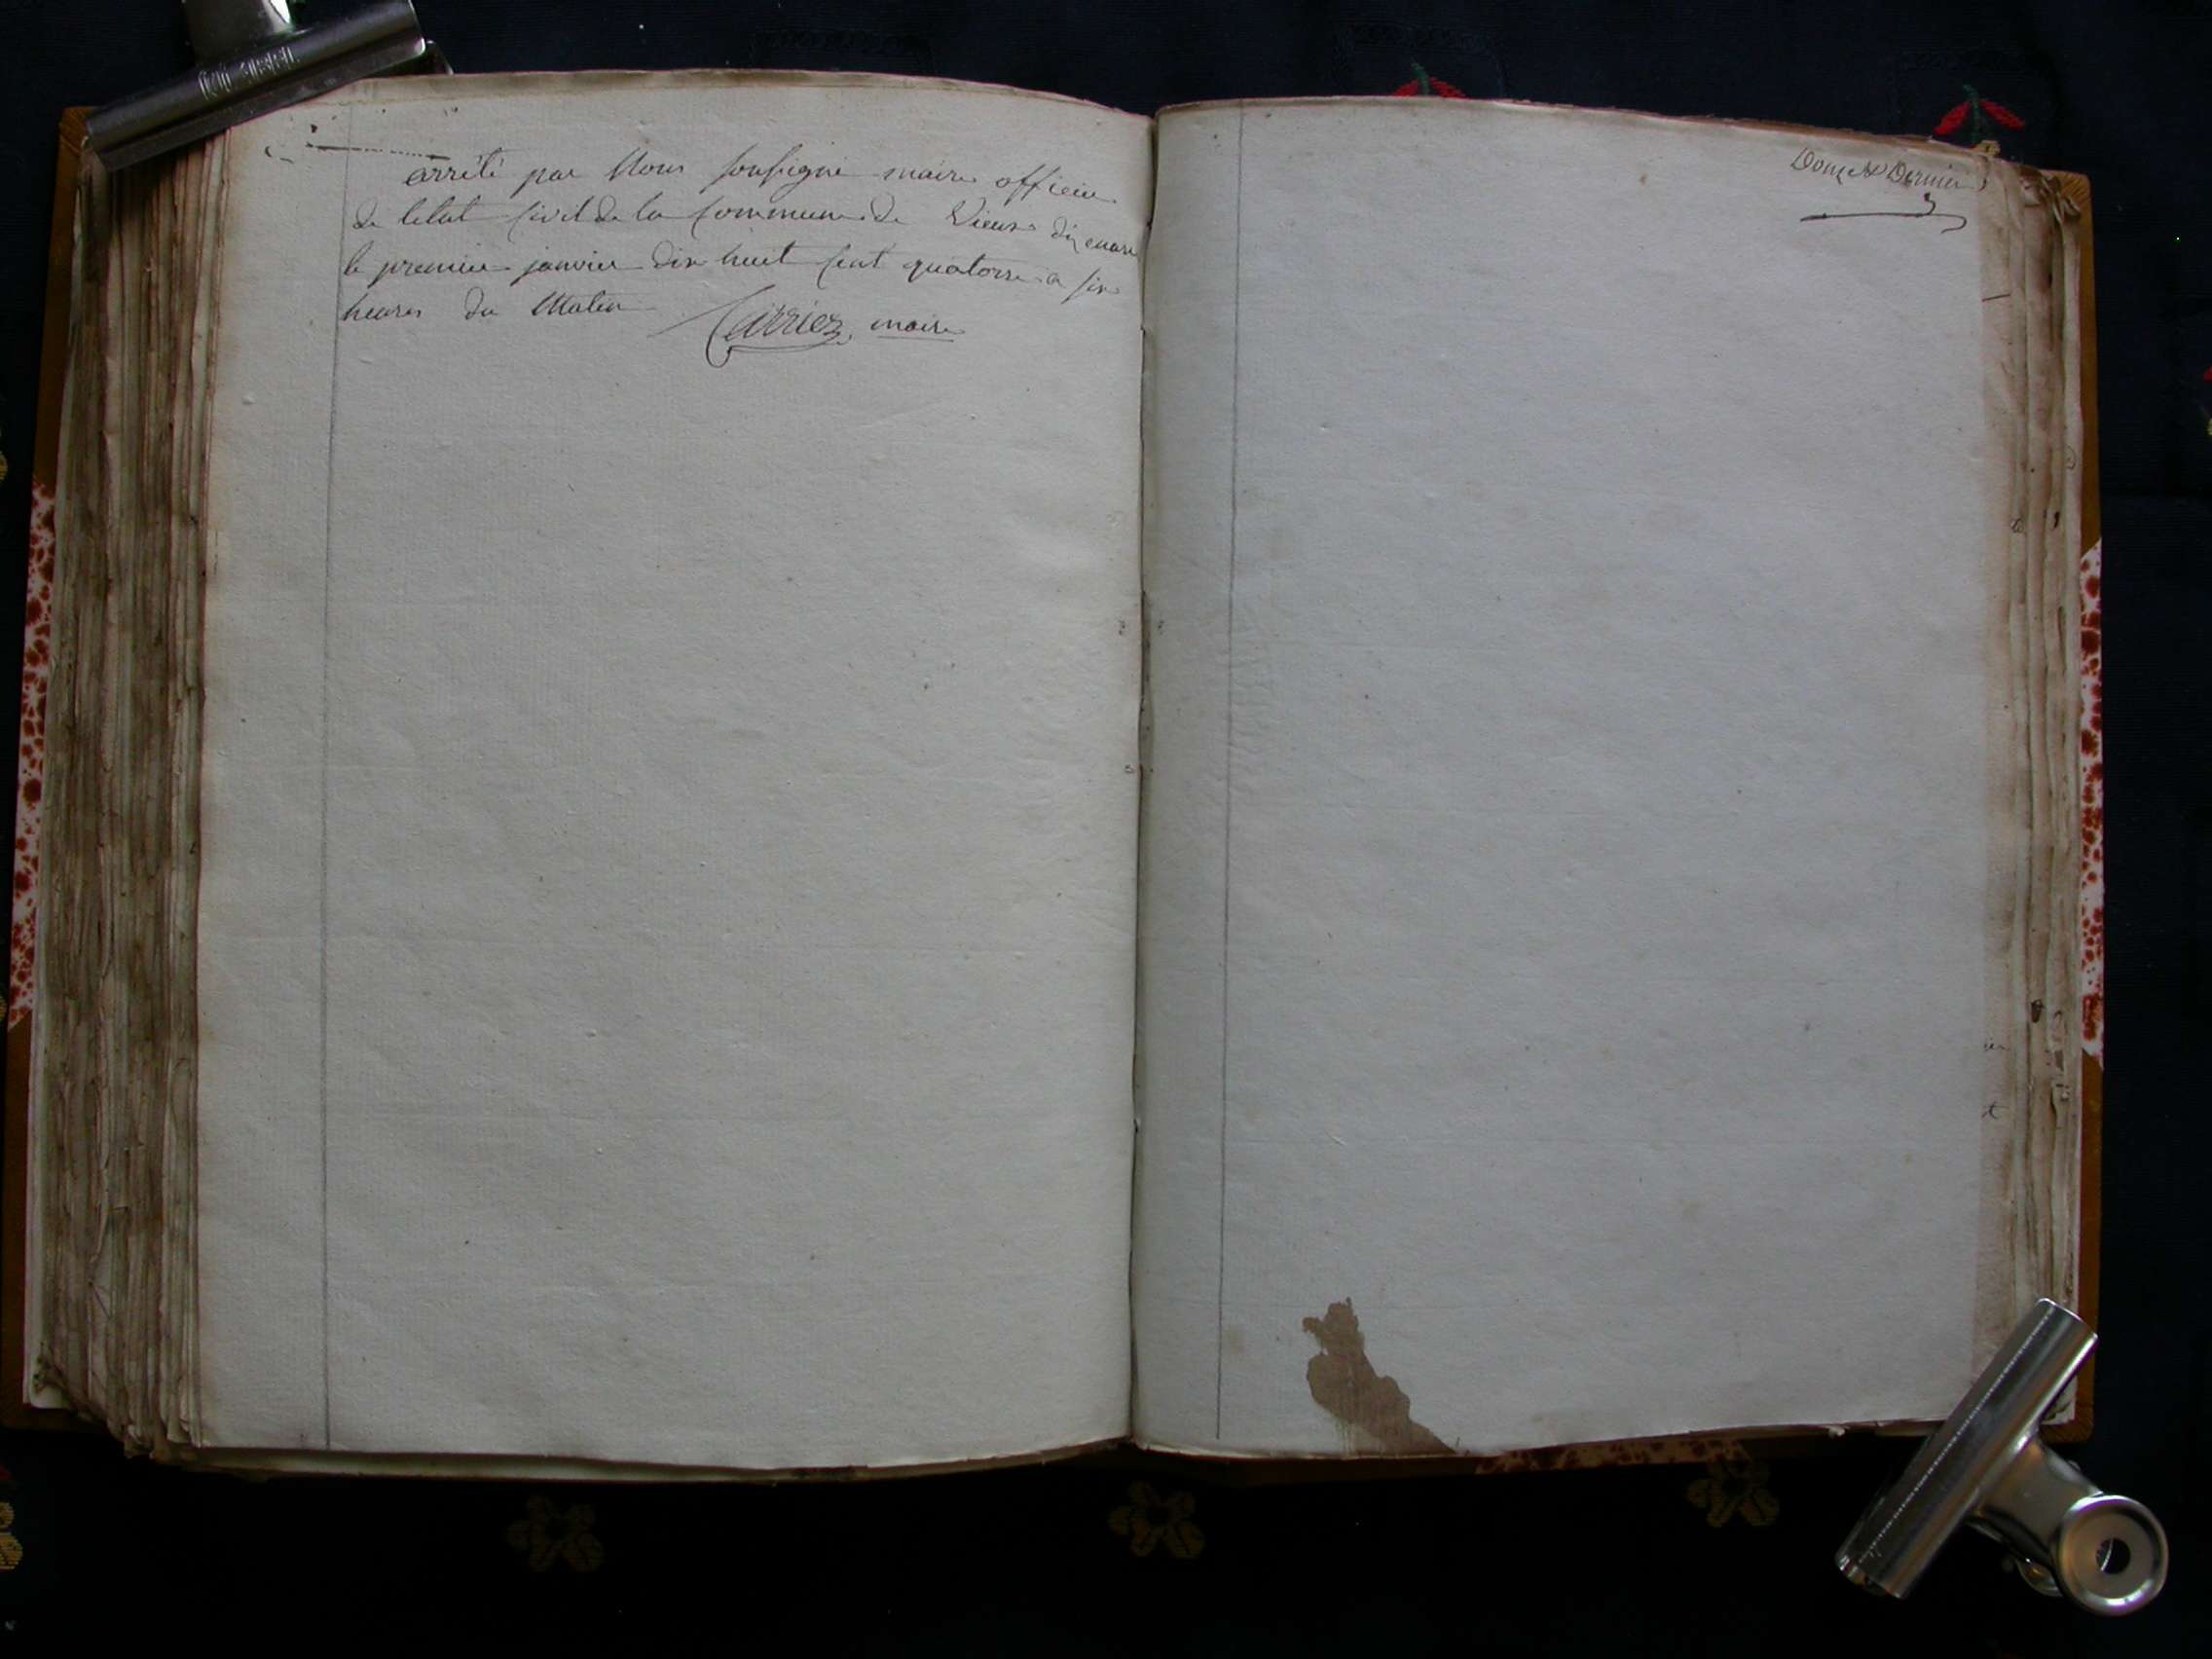 arrêté par Nous soussigné maire officier
de letat Civil de la Commune de Vieux
le premier janvier dix huit Cent quatorze a six
heures du Matin
Carriez, maire
Douze & Dernier